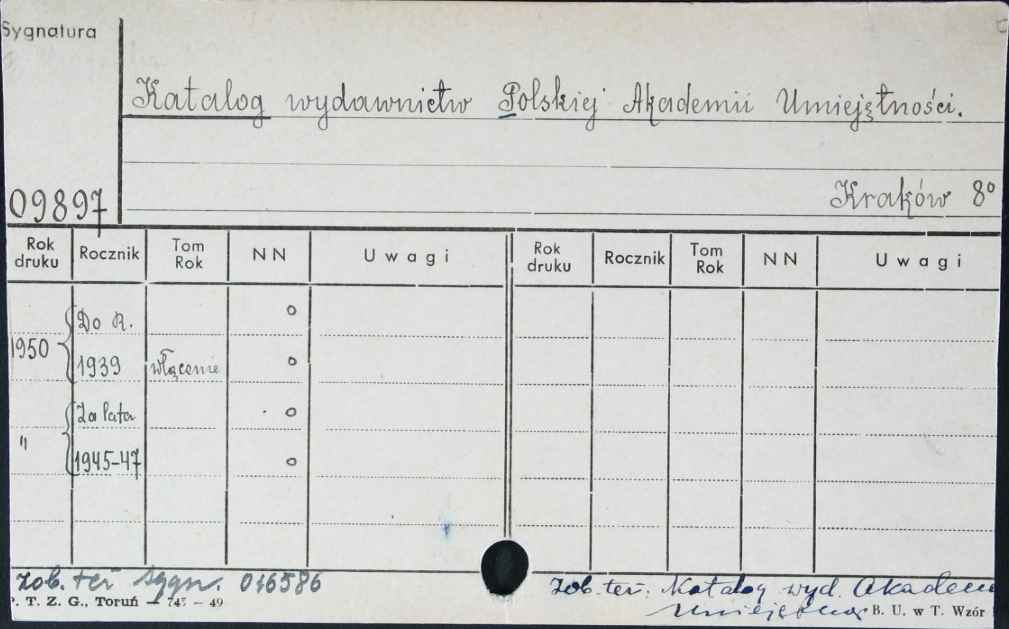 Sygnatura
Katalog wydawnictw Polskiej Akademii Umiejętności.
Kraków 8°
09897
Rok druku Rocznik Tom Rok NN Uwagi Rok druku Rocznik Tom Rok NN Uwagi
Do R. o
1950 1939 włącznie o
Za lata o
" 1945-47 o
zob. też sygn. 016586 zob. też: Katalog wyd. Akadem
P. T. Z. G., Toruń — 745 – 49 B. U. w T. Wzór